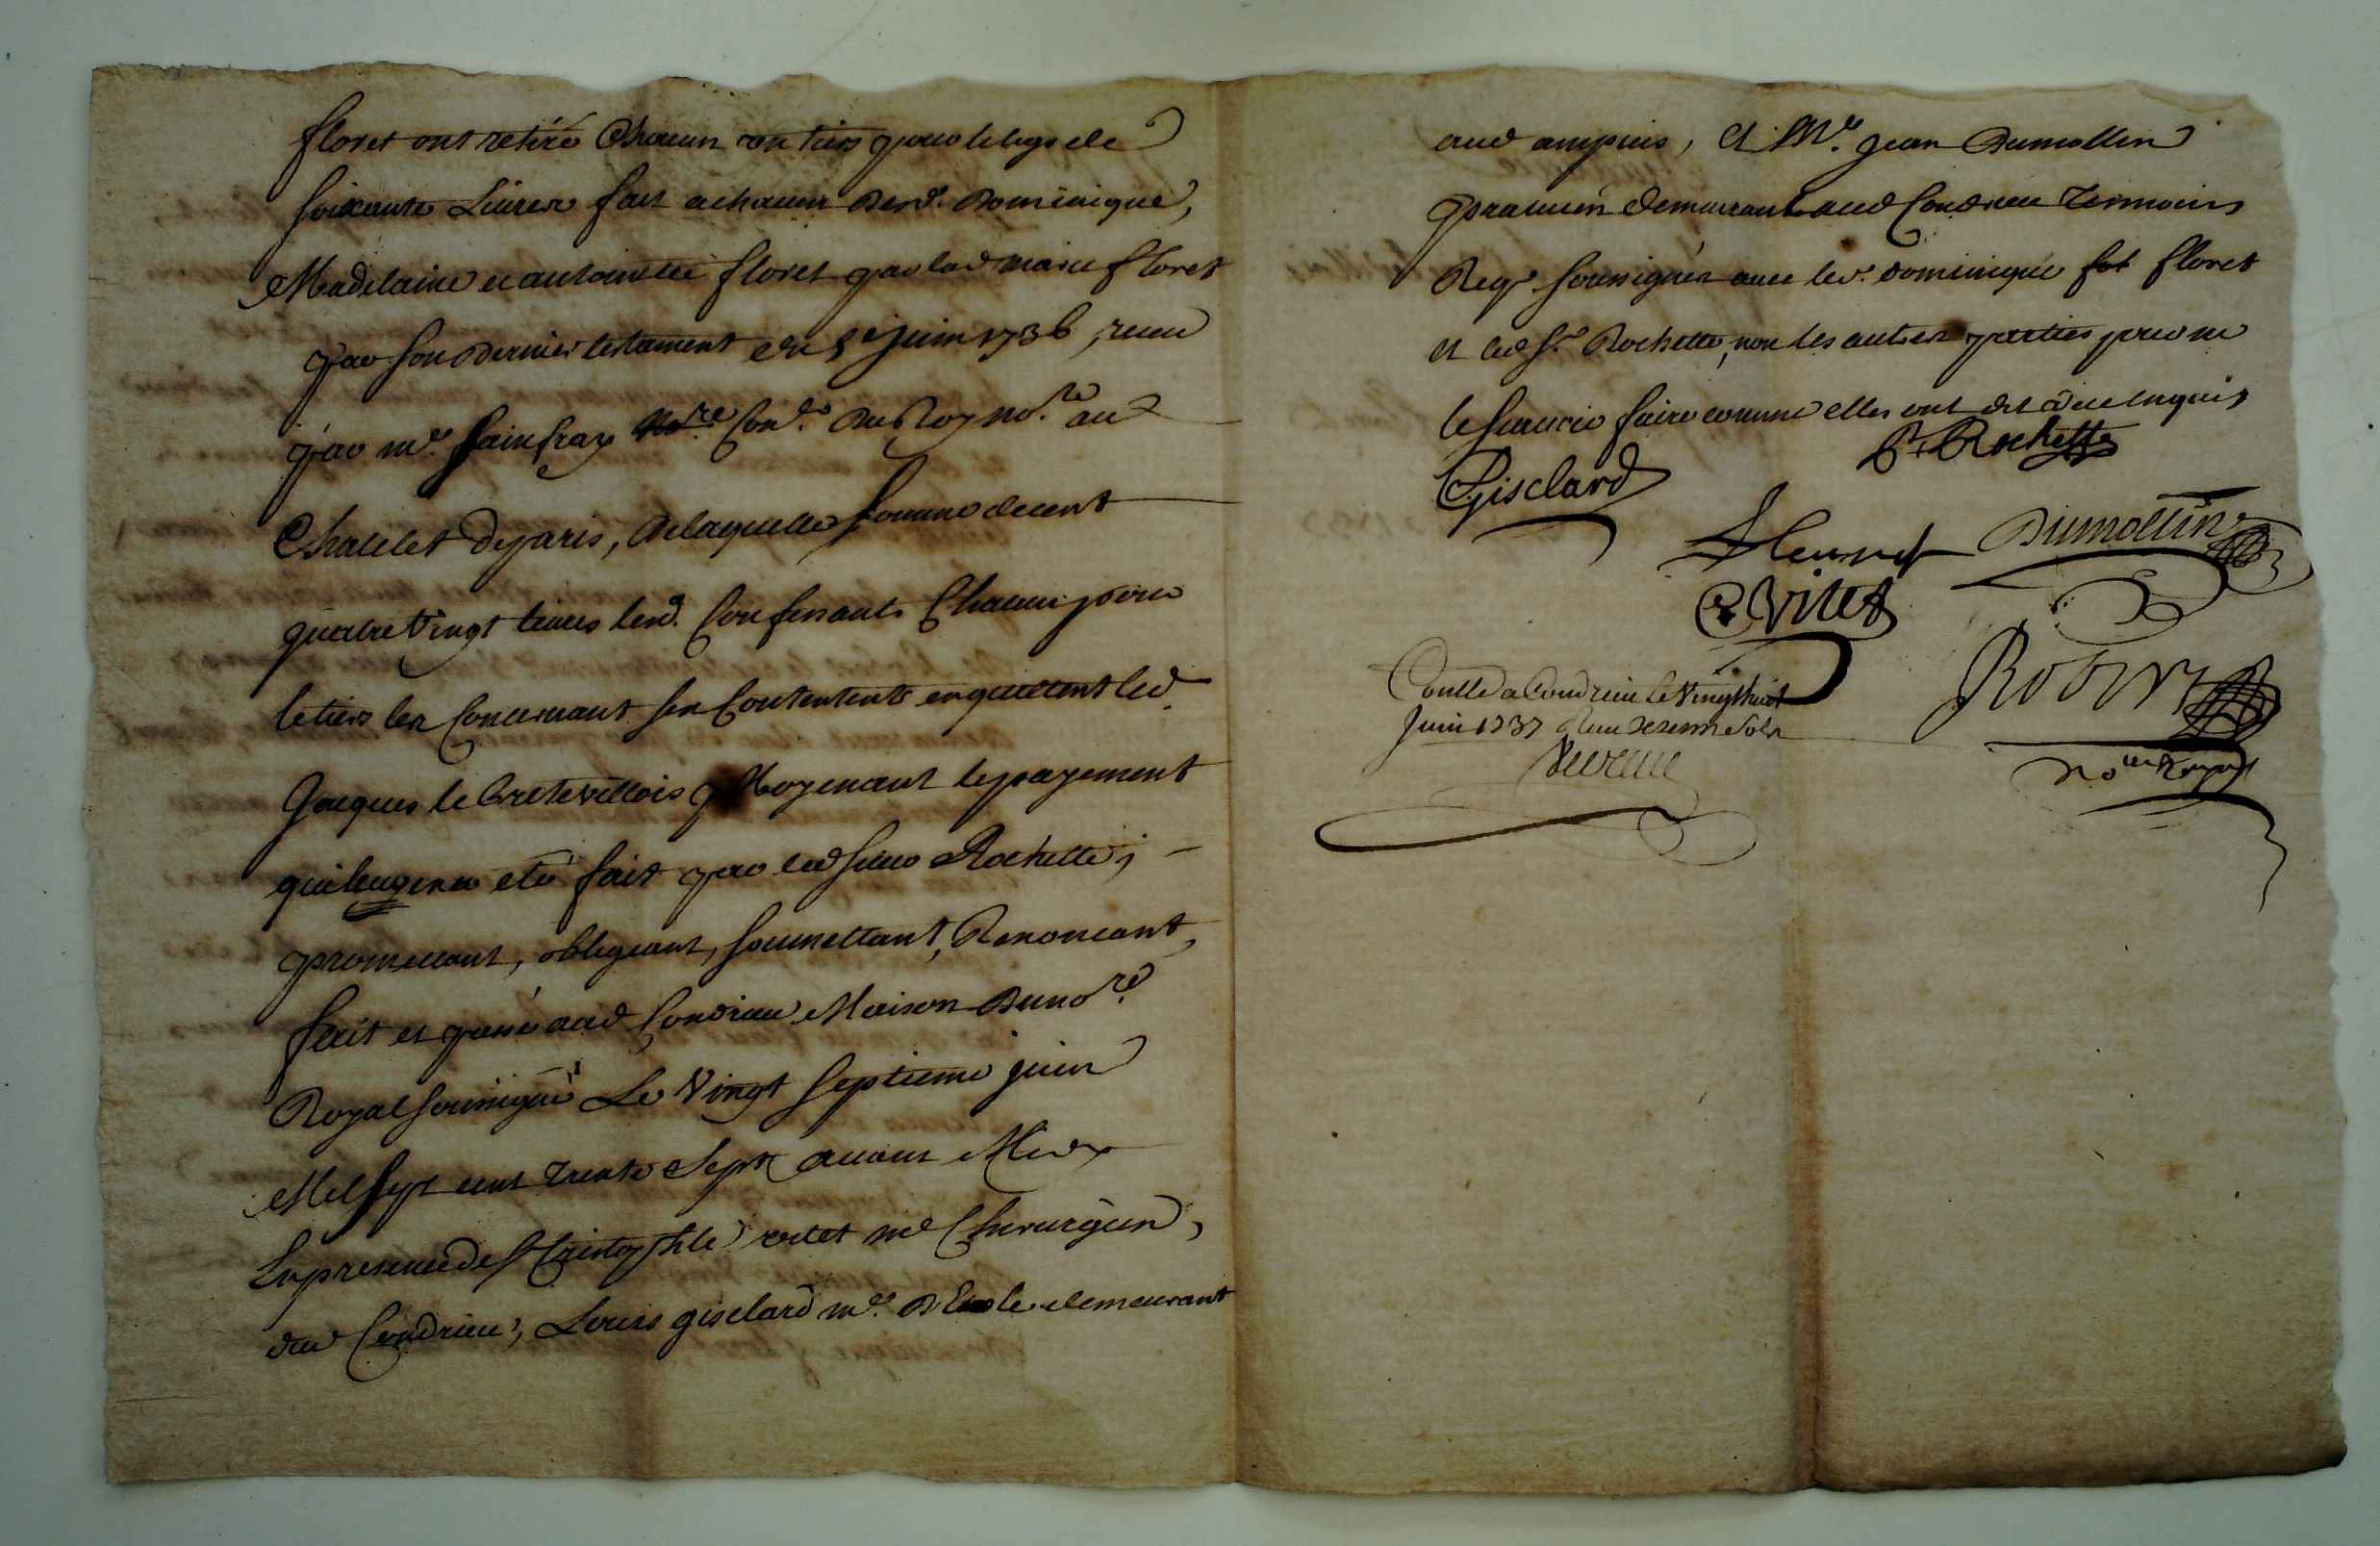 floret ont retiré Chacun un tiers pour le legs de
soixante Livres fait a chacun desd. Dominique,
Madelaine et antoinette floret par lad marie floret
par son dernier testament du 5e juin 1736, receu
par me. Sainfray Con.er du Roy no.re au
Chatelet de paris, de laquelle somme de cent
quatre Vingt livres lesd. Confessants Chacun pour
le tiers les Concernant se Contentent en quittent led.
Jacques le bretevillois Moyenant le payement
qui leur en a eté fait par led sieur Rochette;
promettant, obligeant, soumettant, Renoncant,
fait et passé aud Condrieu Maison du no.re
Royal soussigné Le Vingt septieme juin
Mil sept cent trente sept avant Midy
En presence de s. Cristophle vitet me Chirurgien,
dud Condrieu, Louis gisclard me. D'Ecole demeurant
aud ampuis, Et Me. jean Dumollin
praticien demeurant aud Condrieu Temoins
Reqs. soussignés avec led. dominique floret
et led sr. Rochette, non les autres parties pour ne
le scavoir faire comme elles ont dit de ce enquis
Gisclard
Rochette
Dumollin
C Vitet
Robin
no.re Royal
Conllé a Condrieu le Vingt huit
Juin 1737 Receu sols